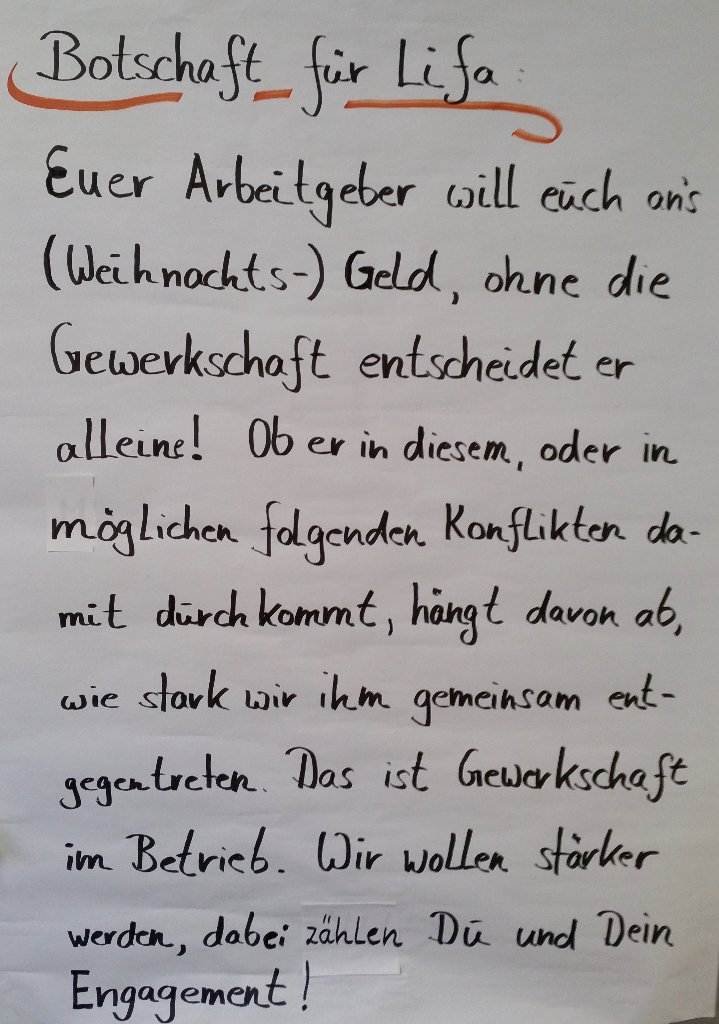 Botschaft für Lifa:
Euer Arbeitgeber will euch an's
(Weihnachts-) Geld, ohne die
Gewerkschaft entscheidet er
alleine! Ob er in diesem, oder in
möglichen folgenden Konflikten da-
mit durchkommt, hängt davon ab,
wie stark wir ihm gemeinsam ent-
gegentreten. Das ist Gewerkschaft
im Betrieb. Wir wollen stärker
werden, dabei zählen Du und Dein
Engagement!